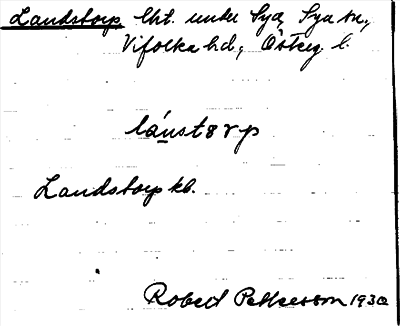 Landstorp lht. under Sya, Sya sn.,
Vifolka hd., Österg. l.
lánstorp
Landstorp kb.
Robert Pettersson 1930